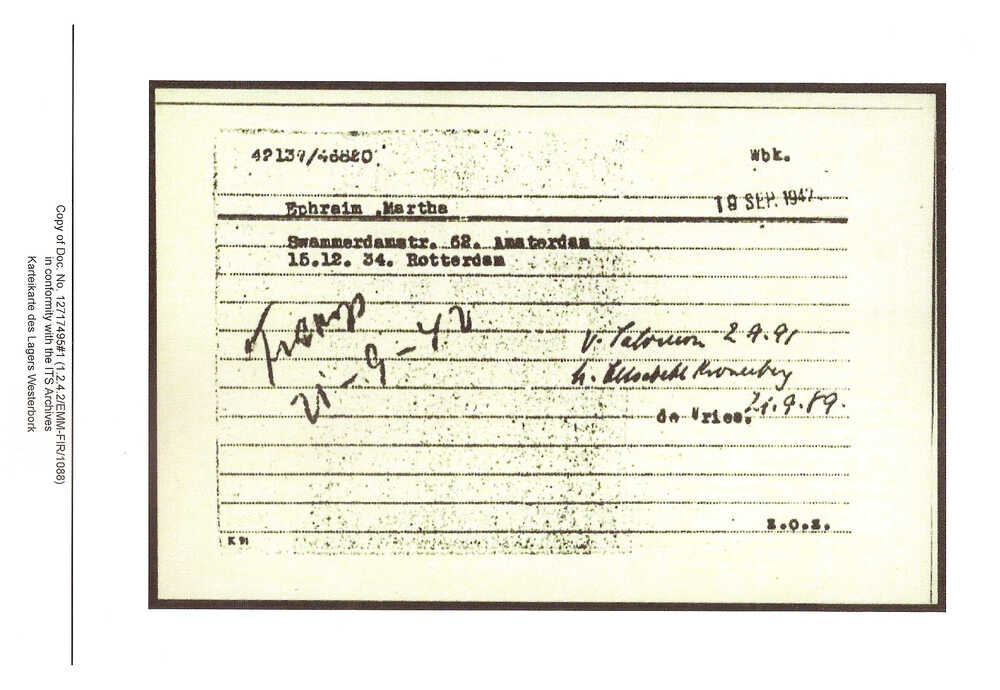 42139/46820
Wbk.
Ephraim ,Martha
19 SEP. 1942
Swammerdamstr. 62. Amsterdam
15.12. 34. Rotterdam
Transp
21-9-42
V. Salomon 2.9.91
M. Elisabeth Kronenberg
21.9.89.
de Vries.
Z.O.Z.
K 91
Copy of Doc. No. 12717495#1 (1.2.4.2/EMM-FIR/1088)
in conformity with the ITS Archives
Karteikarte des Lagers Westerbork